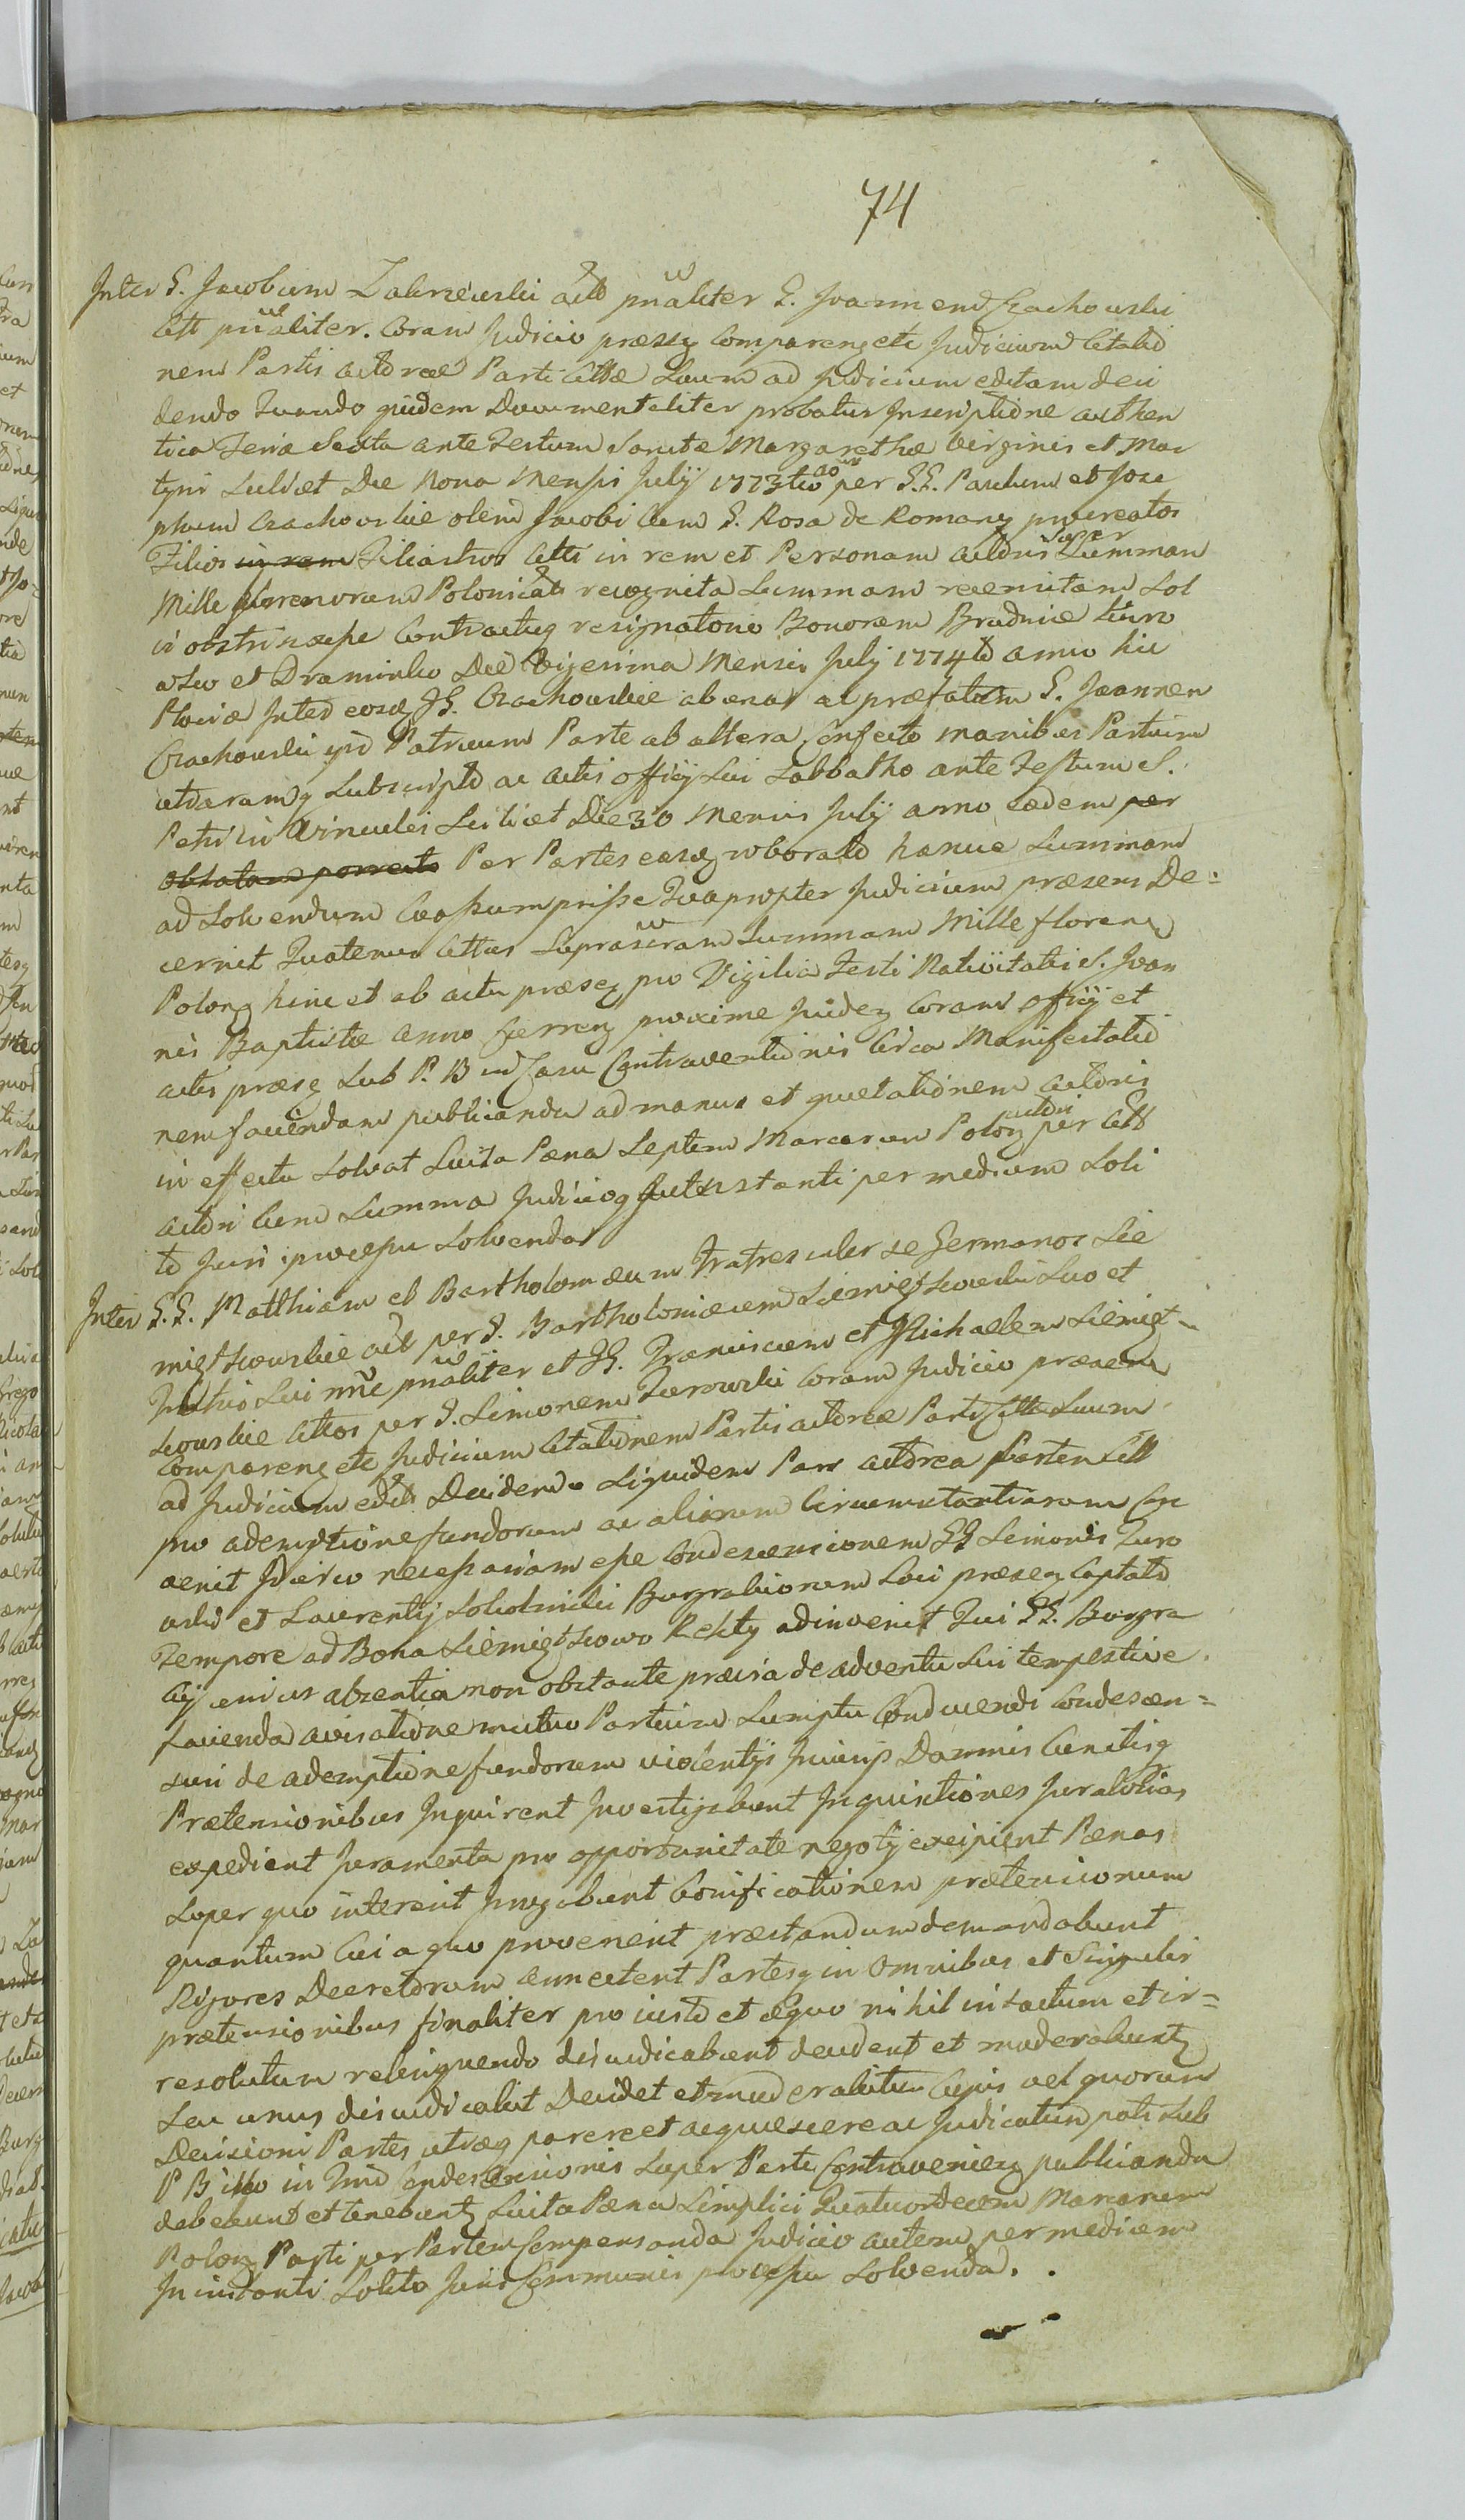 74
Inter G. Jacobum Zakrzewski act pnaliter G. Joannem Czachowski
Citt pnaliter. Coram Judicio præsq comparenq etc Judicium Citatio
nem Partis actoreæ Parti Cittæ Suum ad Judicium editam deci
dendo Quando quidem Documentaliter probatur Inscriptione authen
tica Feria Sexta ante Festum Sanctæ Margarethæ Virginis et Mar
tyris Scilicet Die Nona Mensis Julij 1773tio per G.G. Paulum et Jose
phum Czachowskie olim Jacobi cum G. Rosa de Romany procreatos
Filios in rem Filiastros Citti in rem et Personam actoris super Summam
Mille florenorum Polonical recognita Summam reemitam Sol
vi obstrinxisse Contractuq resignationis Bonorum Brudnice Siuro
wo et Draminko Die Vigesima Mensis Julij 1774to anno hic
Plociæ Inter eosdq GG. Czachowskie ab una ac præfatum G. Joannem
Czachowski ipso Patruum Parte ab altera Confecto manibus Partium
utrarumq Subscripto ac actis officij Sui Sabbatho ante Festum S.
Petri in Vinculis Scilicet Die 30 Mensis Julij anno eodem per
oblatam porrecto Per Partes easdq roborato hancce Summam
ad Solvendum Coassumpsisse Quapropter Judicium præsens De=
cernit Quatenus Cittus Suprascram Summam Mille floren
Polonq hinc et ab actu præseq pro Vigilia Festi Nativitatis S. Joan
nis Baptistæ anno Curren proxime Coram officij et
actis præseq Sub P. B in Casu Contraventionis Circa Manifestatio
nem faciendam publicanda ad manus et quietationem actoris
in effectu Solvat Luita Pæna Septem Marcarum Polonq per Citt actori
actori cum Summa Judicioq Instanti per medium Soli
to Juris processu Solvenda
Inter G.G. Matthiam et Bartholomæum Fratres inter se Germanos Sie
miętkowskie act per G. Bartholomæum Siemiętkowski Suo et
Fratris Sui nne pnaliter et GG. Franciscum et Michaelem Siemięt-
kowskie Cittos per G. Simonem Zurowski Coram Judicio præsenq
Comparenq etc Judicium Citationem Partis actoreæ Parti Cittæ Suum
ad Judicium edit Decidendo Siquidem Pars actorea Partem Citt
pro ademptione fundorum ac aliorum Circumstantiarum Con
venit Ideirco necessariam esse Condescensionem GG Simonis Zuro
wski et Laurentij Sokolnicki Burgrabiorum Loci præseq Captato
Tempore ad Bona Siemiętkowo Rekty adinvenit Qui GG. Burgra
bij unius absentia non obstante prævia de adventu Sui tempestive
facienda avisatione mutuo Partium Sumptu Conducendi Condescen=
suri de ademptione fundorum violentijs Injurijs Damnis Cunctisq
Prætensionibus Inquirent Investigabunt Inquisitiones Juratorias
expedient Juramenta pro opportunitate negotij excipient Pænas
Super quo intererit Irrogabunt Bonificationem prætensionum
quantum Cui a quo provenerit præstandum demandabunt
Rigores Decretorum annectent Partesq in Omnibus et Singulis
prætensionibus finaliter pro iusto et æquo nihil intactum et ir=
resolutum relinquendo disiudicabunt decident et moderabunt
Seu unus disiudicabit Decidet et moderabitur Cujus vel quorum
Decisioni Partes utræq parere et acquiescere ac Judicatum pati Sub
P B illo in Fundo Condescensionis Super Parte Contravenienq publicanda
debebunt et tenebuntq Luita Pæna Simplici Quatuordecem Marcarum
Polonq Parti per Partem Compensanda Judicio autem per medium
Inin Instanti Solito Juris Communis processu Solvenda.